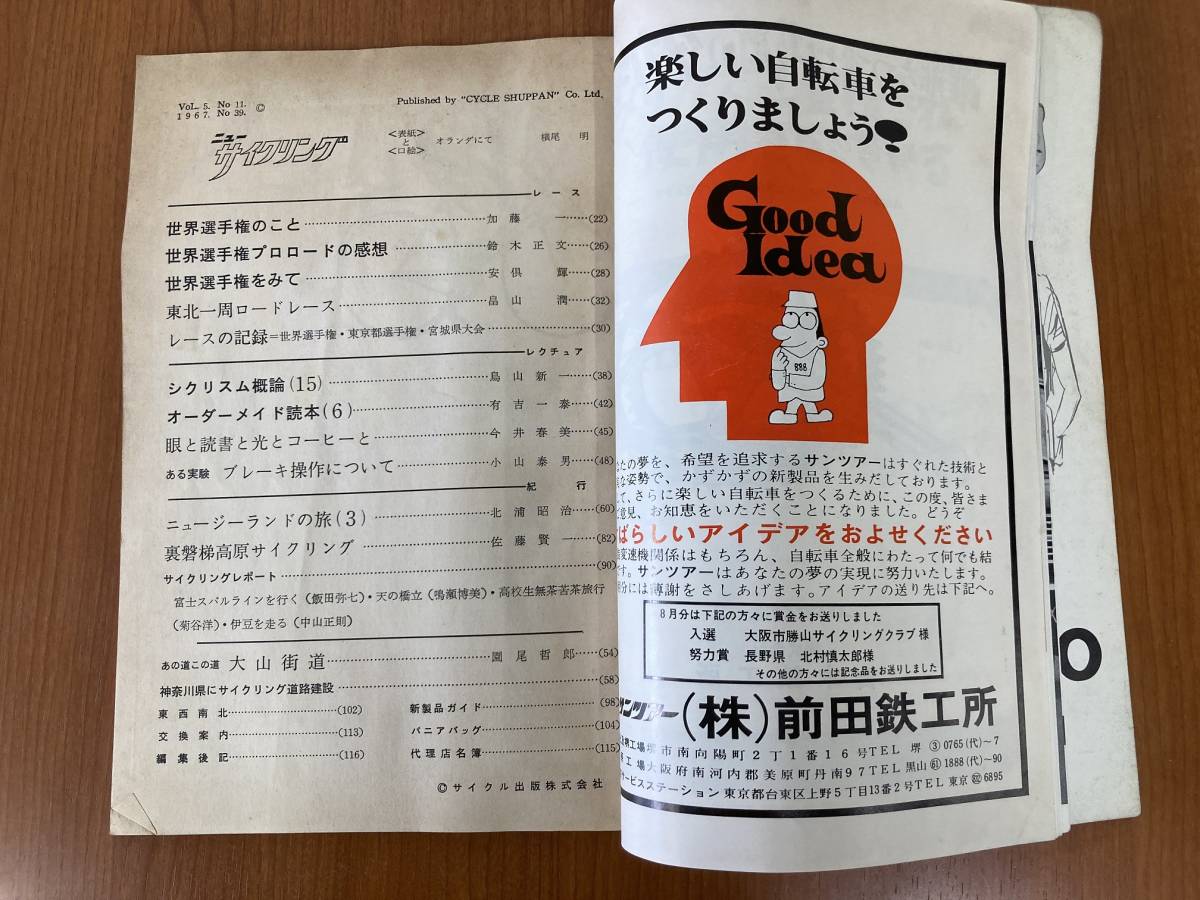 VoL. 5. No 11.
1967. No 39. ©
Published by "CYCLE SHUPPAN" Co. Ltd.
ニュー
サイクリング
<表紙>
と
<口絵>
オランダにて 横尾 明
レース
世界選手権のこと 加藤 一 (22)
世界選手権プロロードの感想 鈴木正文 (26)
世界選手権をみて 安倶 輝 (28)
東北一周ロードレース 畠山 潤 (32)
レースの記録=世界選手権・東京都選手権・宮城県大会 (30)
レクチュア
シクリスム概論(15) 鳥山新一 (38)
オーダーメイド読本(6) 有吉一泰 (42)
眼と読書と光とコーヒーと 今井春美 (45)
ある実験 ブレーキ操作について 小山泰男 (48)
紀行
ニュージーランドの旅(3) 北浦昭治 (60)
裏磐梯高原サイクリング 佐藤賢一 (82)
サイクリングレポート (90)
富士スバルラインを行く(飯田弥七)・天の橋立(鳴瀬博美)・高校生無茶苦茶旅行
(菊谷洋)・伊豆を走る(中山正則)
あの道この道 大山街道 園尾哲郎 (54)
神奈川県にサイクリング道路建設 (58)
東西南北 (102) 新製品ガイド (98)
交換案内 (113) パニアバッグ (104)
編集後記 (116) 代理店名簿 (115)
©サイクル出版株式会社
楽しい自転車を
つくりましょう!
Good
Idea
888
たの夢を、希望を追求するサンツアーはすぐれた技術と
な姿勢で、かずかずの新製品を生みだしております。
て、さらに楽しい自転車をつくるために、この度、皆さま
意見、お知恵をいただくことになりました。どうぞ
ばらしいアイデアをおよせください
変速機関係はもちろん、自転車全般にわたって何でも結
す。サンツアーはあなたの夢の実現に努力いたします。
分には薄謝をさしあげます。アイデアの送り先は下記へ。
8月分は下記の方々に賞金をお送りしました
入選 大阪市勝山サイクリングクラブ様
努力賞 長野県 北村慎太郎様
その他の方々には記念品をお送りしました
サンツアー(株)前田鉄工所
工場 堺市南向陽町2丁1番16号TEL 堺 ③0765(代)~7
工場 大阪府南河内郡美原町丹南97TEL 黒山 ㊿1888(代)~90
ービスステーション 東京都台東区上野5丁目13番2号TEL 東京 6895